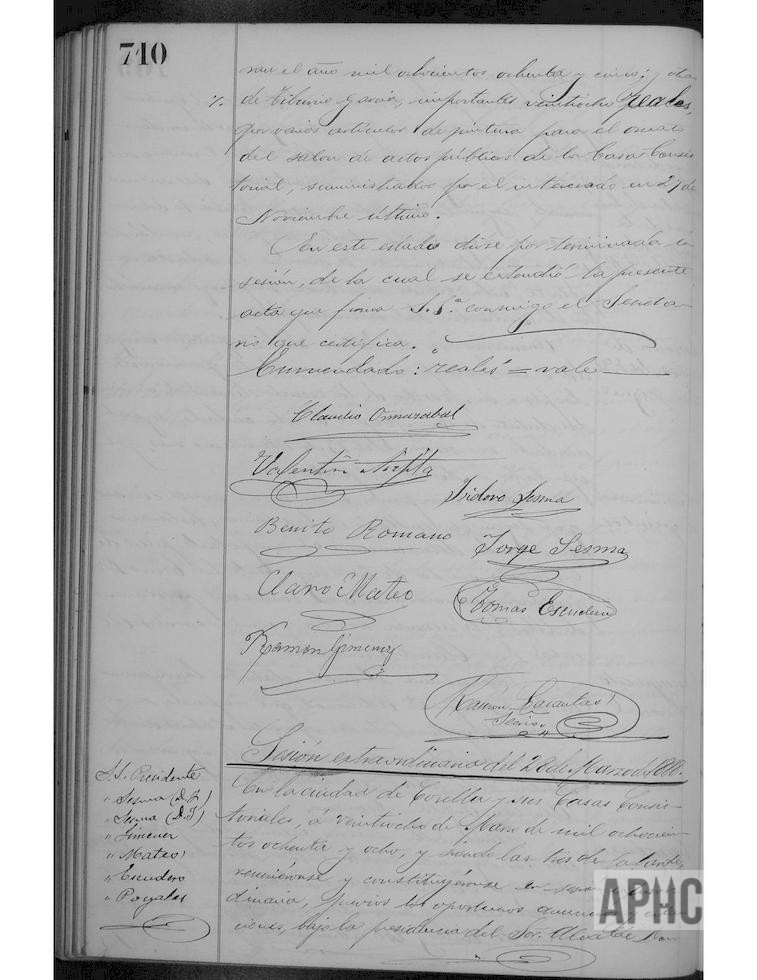 710
nan el año mil ochocientos ochenta y cinco; y otra
de Tiburcio Garcia, importantes veintiocho reales,
por varios artículos de pintura para el ornato
del salon de actos públicos de la Casa Consis
torial, suministrados por el interesado en 27 de
Noviembre último.
En este estado dióse por terminada la
sesión, de la cual se extendió la presente
acta que firma S.Sª conmigo el Secreta-
rio que certifica.
Enmendado: "reales" = vale
Claudio Ormazabal
Valentin
Isidoro Sesma
Benito Romano
Jorge Sesma
Claro Mateo
Tomas Escudero
Ramon Gimenez
Ramón
Srio
Sesión extraordinaria del 28 de Marzo de 1888.
S.S. Presidente
" Sesma (D. J.)
" Sesma (D. I.)
" Jimenez
" Mateo
" Escudero
" Poyales
En la ciudad de Corella y sus Casas Consis-
toriales, á veintiocho de Marzo de mil ochocien-
tos ochenta y ocho, y siendo las tres de la tarde,
reuniéronse y constituyéronse en sesión extraor
dinaria, previos los oportunos anuncios y cita
ciones, bajo la presidencia del Sor. Alcalde Don
APHC